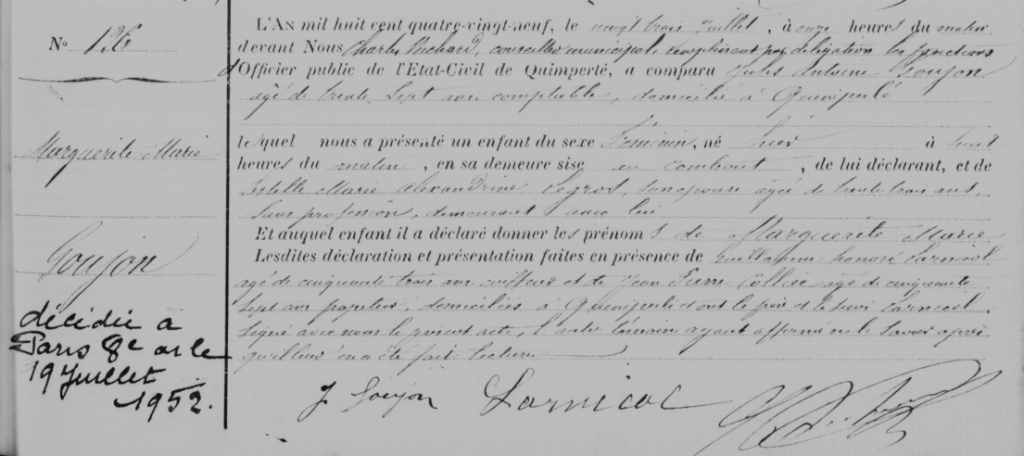 N° 126
Marguerite Marie
Goujon
décidée à
Paris 8e ar le
19 Juillet
1952.
L'AN mil huit cent quatre-vingt-neuf, le vingt trois Juillet, à onze heures du matin
devant Nous Charles Richard, conseiller municipal, remplissant par délégation les fonctions
d'Officier public de l'Etat-Civil de Quimperlé, a comparu Jules Antoine Goujon
agé de trente sept ans comptable, domicilié à Quimperlé
lesquel nous a présenté un enfant du sexe féminin, né hier à huit
heures du matin, en sa demeure sise au combout, de lui déclarant, et de
Estelle Marie Alexandrine Legros, son épouse agée de trente trois ans,
sans profession, demeurant avec lui
Et auquel enfant il a déclaré donner les prénoms de Marguerite Marie
Lesdites déclaration et présentation faites en présence de Guillaume honoré Larnicol
agé de cinquante trois ans coiffeur et de Jean Pierre agé de cinquante
sept ans, domiciliés à Quimperlé dont le père et le sieur Larnicol.
signé avec nous le présent acte, l'autre témoin ayant affirmé ne le savoir après
qu'il leur en a été fait lecture
J Goujon Larnicol